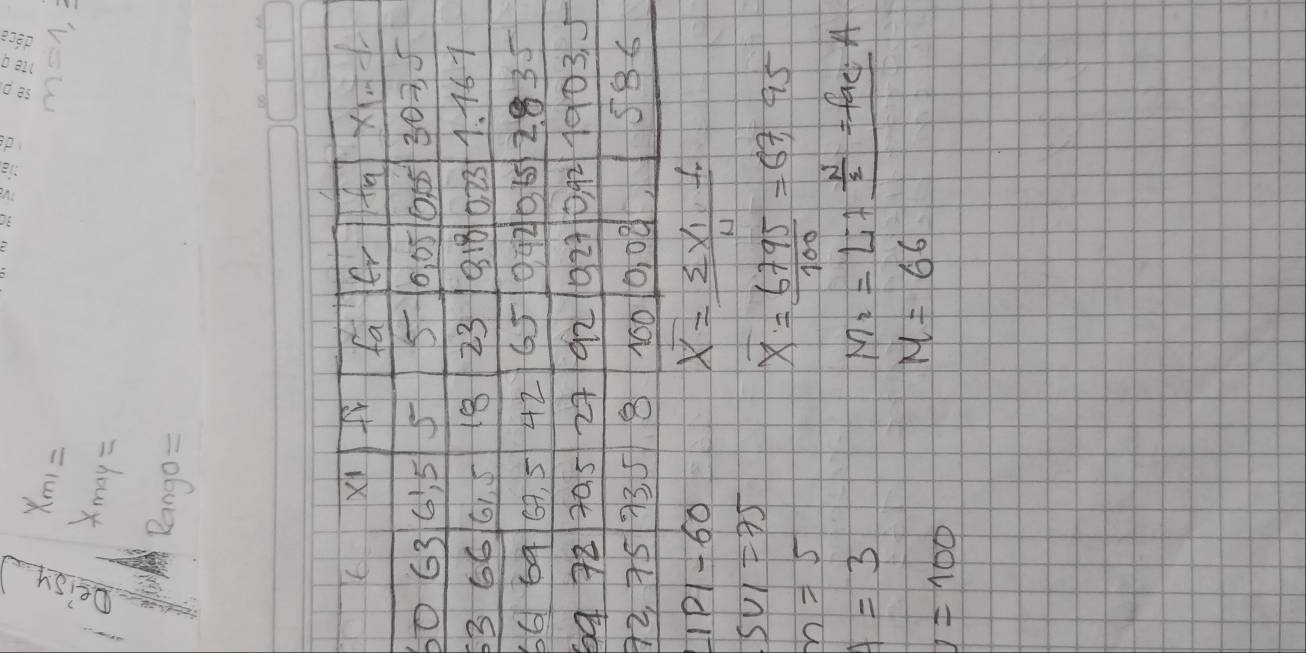 Deisy
Xmi =
Xmay =
Rango =
X1 fr fa fr fa X1 . f
60 63 61,5 5 5 0,05 0,05 307,5
63 66 61,5 18 23 0,18 0,23 1.161
66 69 67,5 42 65 0,42 0,65 2.835
69 72 70,5 27 92 0,27 0,92 1903,5
72, 75 73,5 8 100 0,08 , 586
LIPI - 60
LSUI = 75
n = 5
A = 3
N = 100
X̄ = Σ X1 . f / N
X̄ = 6795 / 100 = 67,95
= Li + N/2 = fac. A
M = 66